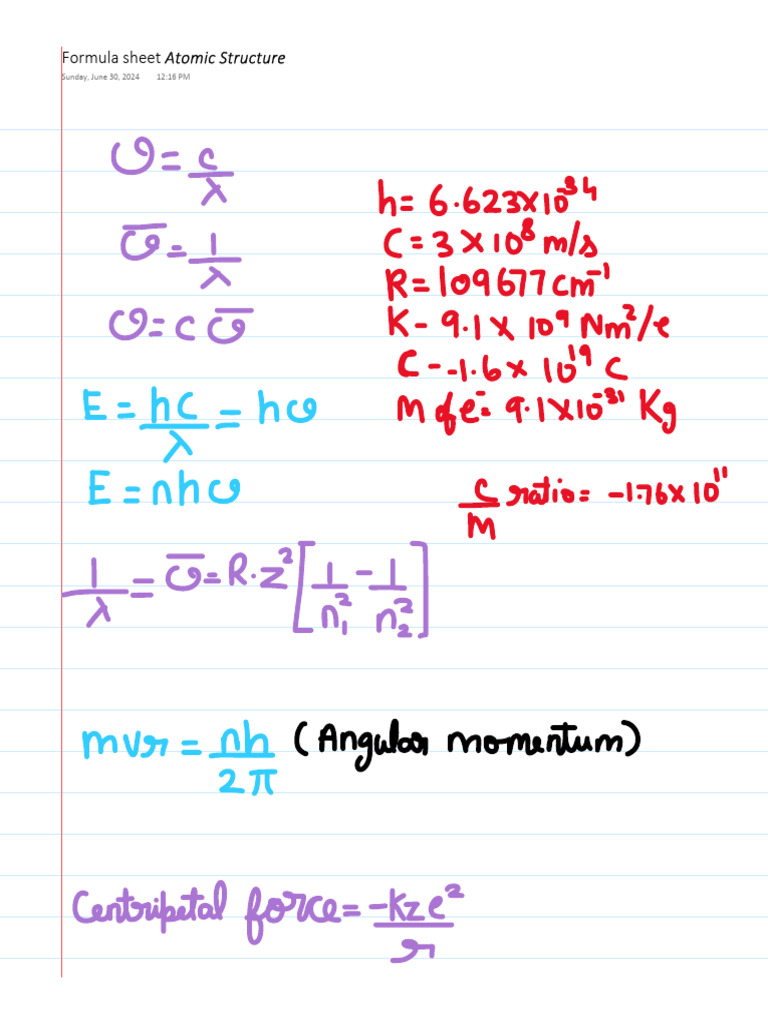 Formula sheet Atomic Structure
Sunday, June 30, 2024 12:16 PM
υ = c/λ
h = 6.623×10⁻³⁴
ῡ = 1/λ
C = 3×10⁸ m/s
R = 109677 cm⁻¹
υ = c ῡ
K - 9.1 × 10⁹ Nm²/e
C - -1.6 × 10¹⁹ C
E = hc/λ = hυ
M of e⁻ = 9.1×10⁻³¹ Kg
E = nhυ
C/M ratio = -1.76×10¹¹
1/λ = ῡ = R·z² [1/n₁² - 1/n₂²]
mvr = nh/2π (Angular momentum)
Centripetal force = -kze²/r